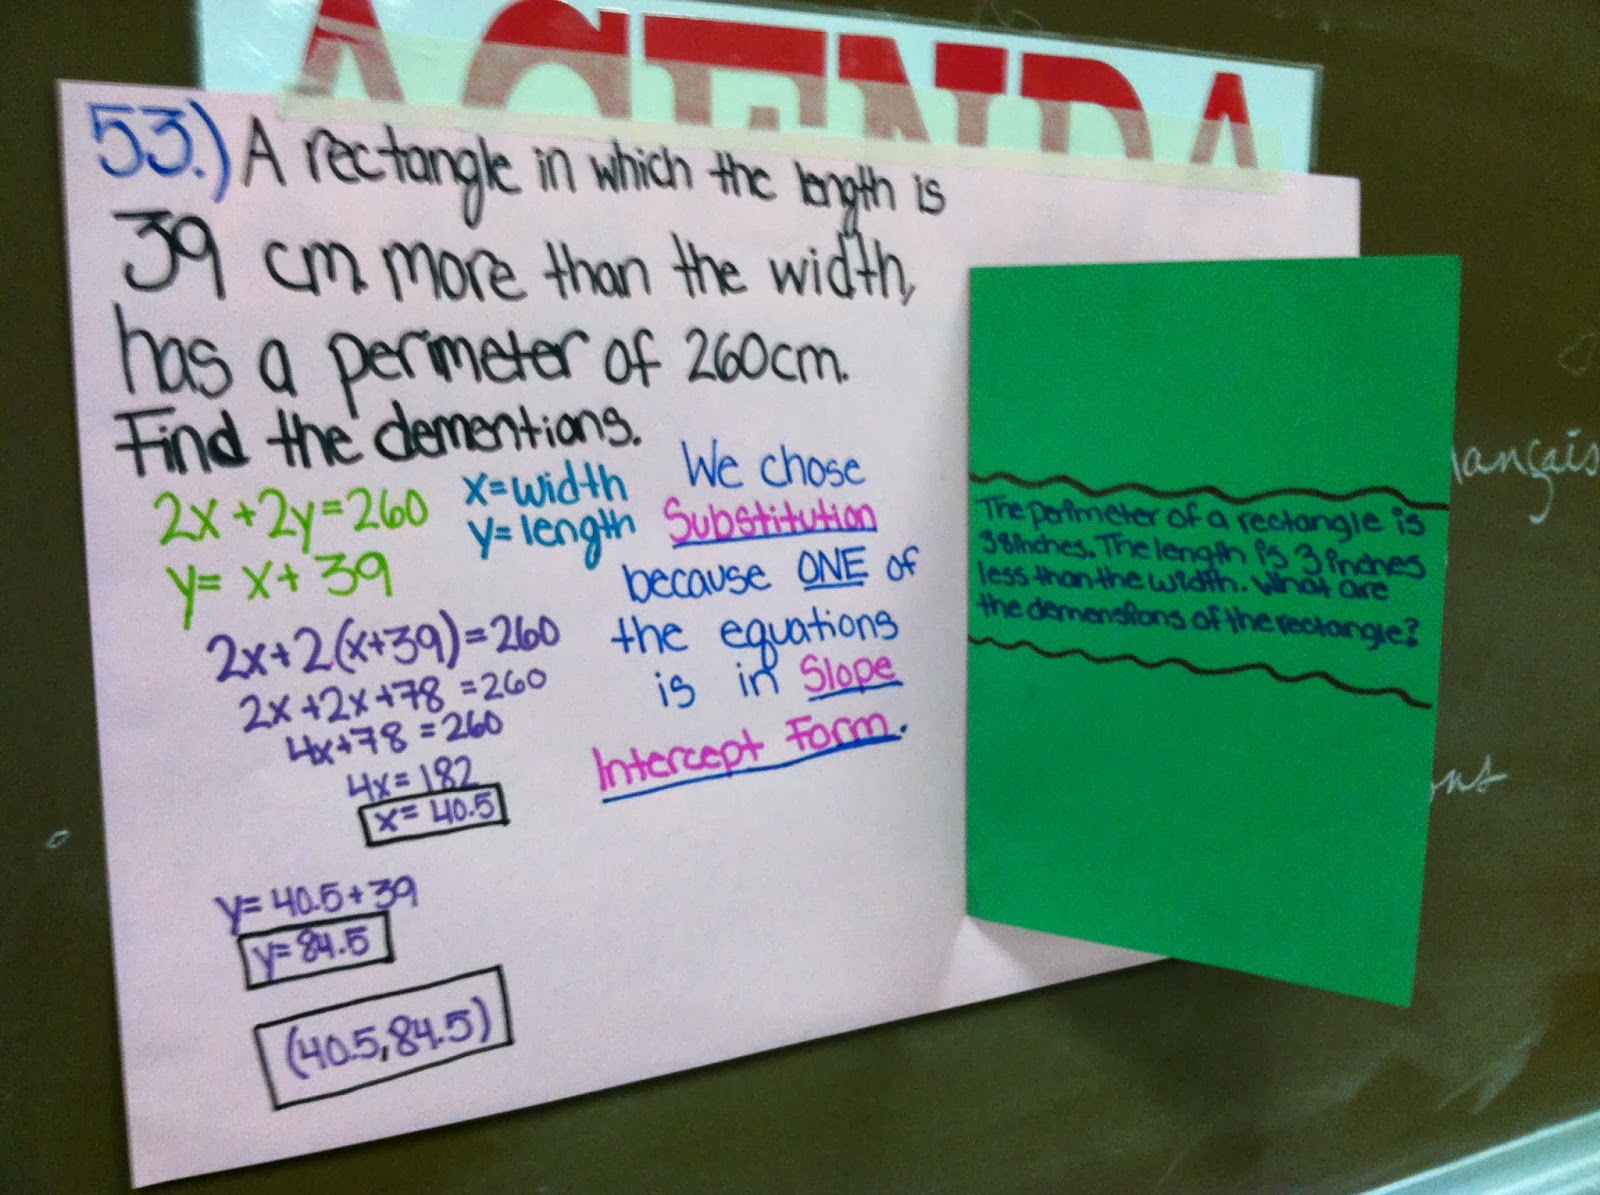 AGENDA
53.) A rectangle in which the length is
39 cm more than the width,
has a perimeter of 260cm.
Find the dementions.
2x+2y=260
y= x+ 39
x=width
y=length
2x+2(x+39)=260
2x+2x+78 =260
4x+78 =260
4x= 182
x= 40.5
y= 40.5+39
y= 84.5
(40.5,84.5)
We chose
Substitution
because ONE of
the equations
is in Slope
Intercept Form.
The perimeter of a rectangle is
38inches. The length is 3 inches
less than the width. What are
the demensions of the rectangle?